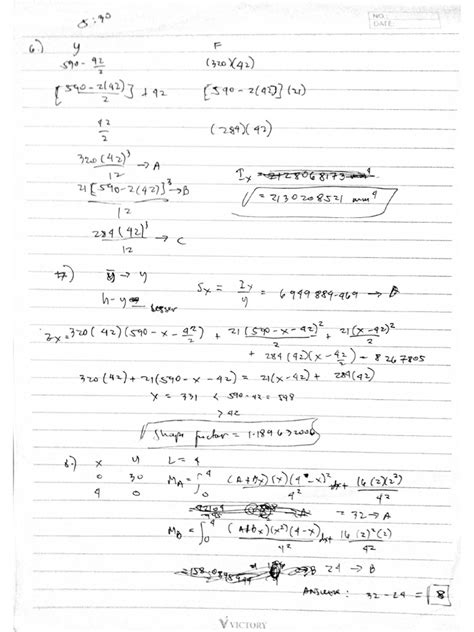 5:30
NO.
DATE
6.) y F
590 - 42/2 (320)(42)
[590-2(42)/2] + 42 [590-2(42)](21)
42/2 (284)(42)
320(42)³/12 → A
21[590-2(42)]³/12 → B
284(42)³/12 → C
Ix
= 2130208521 mm⁴
→ y
h-y
Sx = Ix/y = 6949884.469 →
Zx = 320(42)(590-x-42/2) + 21(590-x-42)²/2 + 21(x-42)²/2
+ 284(42)(x-42/2) = 8267805
320(42)+21(590-x-42) = 21(x-42)+284(42)
x = 331 < 590-42 = 548
> 42
Shape factor = 1.189632006
8.) x y L = 4
0 30 MA = ∫₀⁴ (A+Bx)(x)(4-x)²/4² dx + 16(2)(2²)/4²
4 0
= 32 → A
MB = ∫₀⁴ (A+Bx)(x²)(4-x)/4² dx + 16(2)²(2)/4²
24 → B
Answer: 32-24 = 8
VICTORY